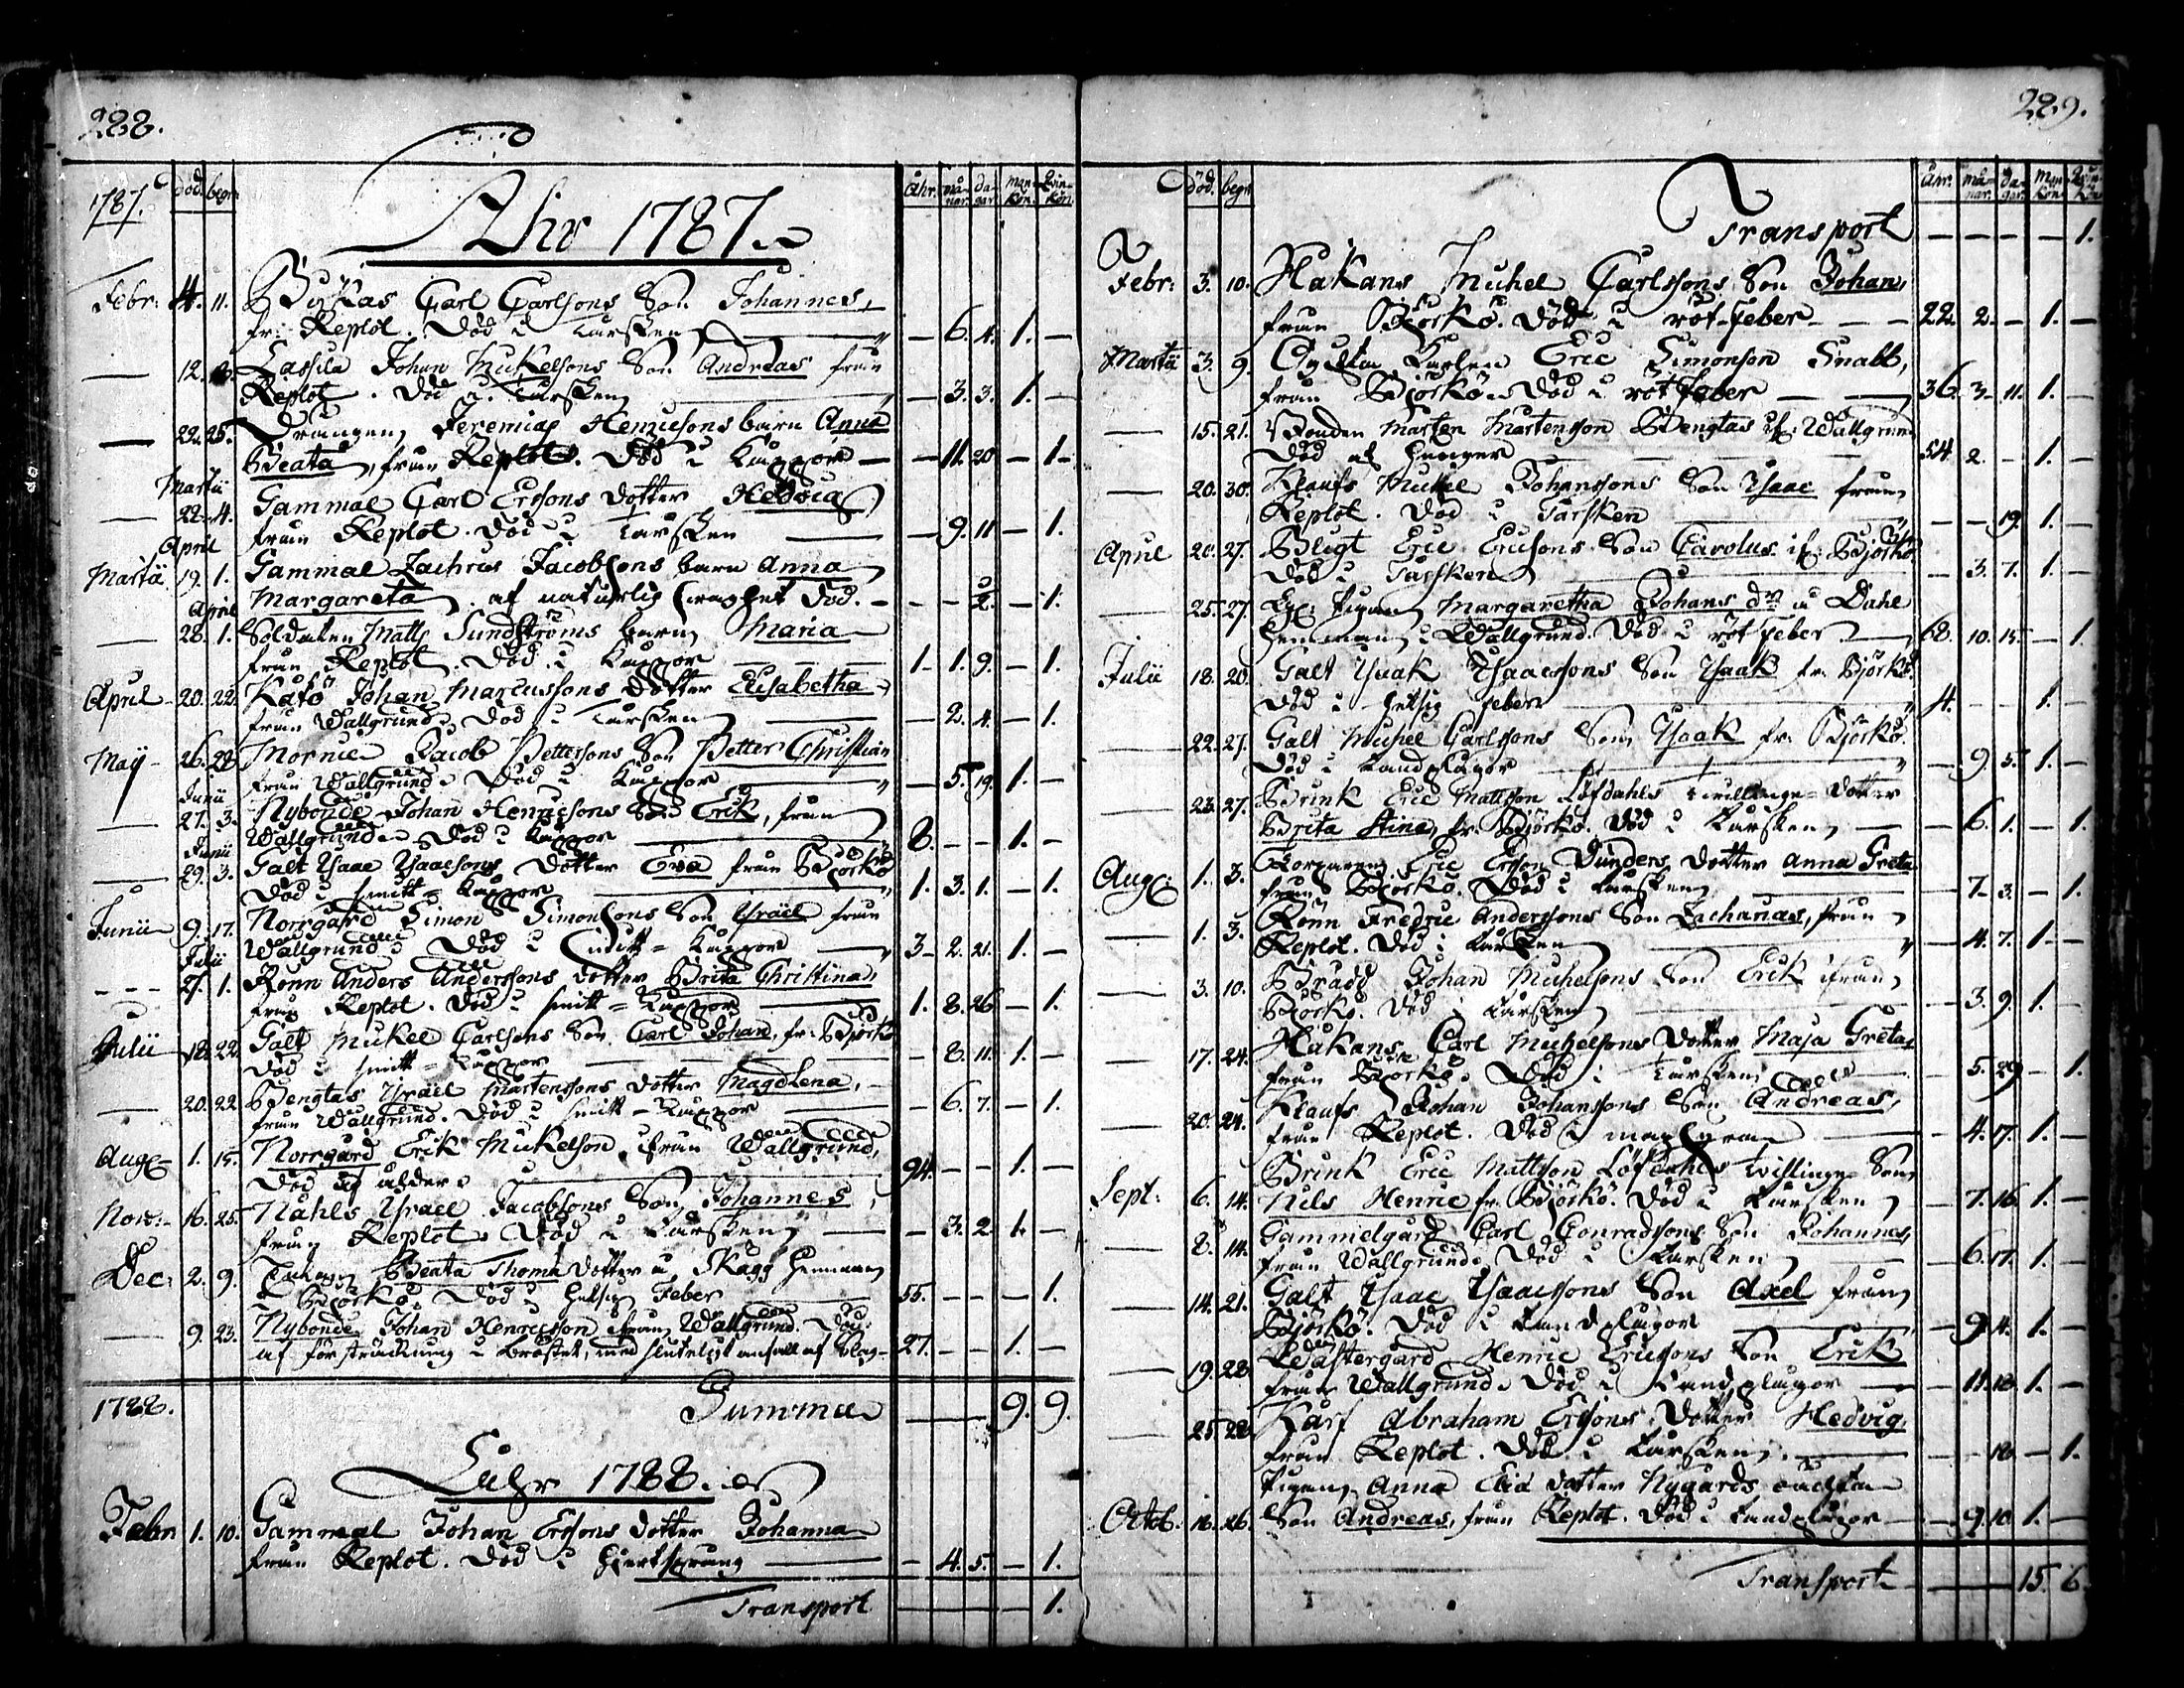 288.
1787. död. begr. Åhr. må-nar. da-gar. Man-kön. Qvin-kön.
Åhr 1787.
Febr: 4. 11. Carl Carlsons Son Johannes,
fr: Replot. Död i Tarsken — 6. 4. 1. —
— 12. Lassila Johan Mickelsons Son Andreas från
Replot. Död i Tarsken — 3. 3. 1. —
— 22. 25. Drängen Jeremias Henricsons barn Anna
Beata, från Replot. Död i Kåppor — 11. 20 — 1.
Martii
— 22. 4. Gammal Carl Ersons dotter Hedvig
från Replot. Död i Tarsken — 9. 11 — 1.
April
Martii 19. 1. Gammal Zachris Jacobsons barn Anna
Margareta. af naturlig svaghet död. — — 2. — 1.
April
— 28. 1. Soldaten Matts Sundströms barn Maria
från Replot. Död i Kåppor 1. 1. 9. — 1.
April 20. 22. Kafö Johan Marcussons dotter Elisabetha
från Wallgrund. Död i Tarsken — 2. 4. — 1.
Maij 26. 28. Mornie Jacob Pettersons Son Petter Christian
från Wallgrund. Död i Kåppor — 5. 19. 1. —
Junii
— 27. 3. Nybonde Johan Henricsons Son Erik, från
Wallgrund. Död i Kåppor 8. — — 1. —
Junii
— 29. 3. Galt Isaac Isaacsons dotter Eva från Björkö
Död i smitt-Kåppor 1. 3. 1. — 1.
Junii 9. 17. Norrgård Simon Simonsons Son Israel från
Wallgrund. Död i smitt-Kåppor 3. 2. 21. 1. —
Julii
27. 1. Rönn Anders Anderssons dotter Brita Christina,
från Replot. Död i smitt-Kåppor 1. 8. 26 — 1.
Julii 18. 22. Galt Mickel Carlsons Son Carl Johan, fr: Björkö
Död i smitt-Kåppor — 8. 11. 1. —
— 20. 22. Bengtas Israel Mårtenssons dotter Magdlena,
från Wallgrund. Död i smitt-Kåppor — 6. 7. — 1.
Aug: 1. 15. Norrgård Erik Mickelson, från Wallgrund,
Död af ålder 94. — — 1. —
Nov: 16. 25. Nåhls Israel Jacobsons Son Johannes,
från Replot. Död i Tarsken — 3. 2. 1. —
Dec: 2. 9. Beata Thomædotter å Skagg hemman
i Björkö Död i hetsig Feber 55. — — — 1.
— 9. 23. Nybonde Johan Henricsson från Wallgrund. Död
af förstreckning i bröstet, med sluteligt anfall af Slag 27. — — 1. —
1788. Summa 9. 9.
Åhr 1788.
Febr 1. 10. Gammal Johan Ersons dotter Johanna
från Replot. Död i hjertsprång — 4. 5. — 1.
Transport 1.
289.
död. begr. Åhr. må-nar. da-gar. Man-kön. Qvin-kön
Transport — — — — 1.
Febr: 3. 10. Håkans Michel Carlssons Son Johan,
från Björkö. Död i röt-feber 22. 2. — 1. —
Martii 3. 9. Karlen Eric Simonson Snabb,
från Björkö. Död i rötfeber 36. 3. 11. 1. —
— 15. 21. Bonden Mårten Mårtensson Bengtas if: Wallgrund
Död af 54. 2. — 1. —
— 20. 30. Klaufs Mickel Johanssons Son Isaac från
Replot. Död i Tarsken — — 19. 1. —
April 20. 27. Bligt Eric Ericsons Son Carolus if: Björkö
Död i Tarsken — 3. 7. 1. —
— 25. 27. Pigan Margaretha Johansdr å Dahl
hemman i Wallgrund. Död i rötfeber 68. 10. 15. — 1.
Julii 18. 20. Galt Isaak Isaacssons Son Isaak fr. Björkö.
Död i hetsig feber 4. — — 1. —
— 22. 27. Galt Michel Carlssons Son Isaak fr. Björkö.
Död i Landplågor — 9. 5. 1. —
— 23. 27. Brink Eric Mattsson Löfdahls tvillinge-dotter
Brita Stina, fr. Björkö. Död i Tarsken — 6. 1. — 1.
Aug: 1. 3. Eric Ersson Dunders dotter Anna Greta
från Björkö. Död i Tarsken — 7. 3. — 1.
— 1. 3. Rönn Fredric Anderssons Son Zacharias, från
Replot. Död i Tarsken — 4. 7. 1. —
— 3. 10. Brådd Johan Michelsons Son Erik från
Björkö. Död i Tarsken — 3. 9. 1. —
— 17. 24. Håkans Carl Michelsons dotter Maja Greta,
från Björkö. Död i Tarsken — 5. 29 — 1.
— 20. 24. Klaufs Johan Johanssons Son Andreas,
från Replot. Död i — 4. 17. 1. —
Brink Eric Mattsson Löfdahls tvillinge Son
Sept: 6. 14. Nils Henric fr. Björkö. Död i Tarsken — 7. 16. 1. —
— 8. 14. Gammelgård Carl Conradssons Son Johannes,
från Wallgrund. Död i Tarsken — 6. 17. 1. —
— 14. 21. Galt Isaac Isaacssons Son Axel från
Björkö. Död i Landplågor — 9. 4. 1. —
— 19. 28. Wästergård Henric Ericssons Son Erik
från Wallgrund. Död i Landplågor — 11. 18. 1. —
— 25. 28. Karf Abraham Ersons dotter Hedvig,
från Replot. Död i Tarsken — — 18 — 1.
Pigan Anna Elia dotter Nygårds oächta
Octob: 16. 26. Son Andreas, från Replot. Död i Landplågor — 9. 10 1. —
Transport 15. 6.